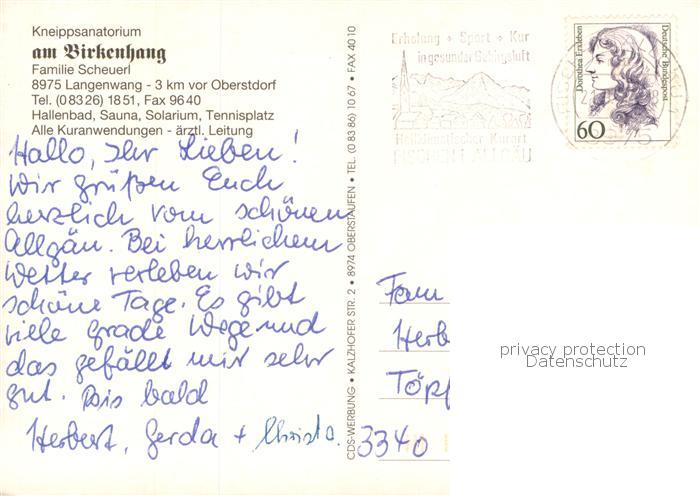 Kneippsanatorium
am Birkenhang
Familie Scheuerl
8975 Langenwang - 3 km vor Oberstdorf
Tel. (0 83 26) 18 51, Fax 96 40
Hallenbad, Sauna, Solarium, Tennisplatz
Alle Kuranwendungen - ärztl. Leitung
Hallo, Ihr Lieben!
Wir grüßen Euch
herzlich vom schönen
Allgäu. Bei herrlichem
Wetter verleben wir
schöne Tage. Es gibt
viele grade Wege und
das gefällt mir sehr
gut. Bis bald
Herbert, Gerda + Christa.
CDS-WERBUNG • KALZHOFER STR. 2 • 8974 OBERSTAUFEN • TEL. (0 83 86) 10 67 • FAX 40 10
Erholung + Sport + Kur
in gesunder Gebirgsluft
Heilklimatischer Kurort
FISCHEN I. ALLGÄU
Dorothea Erxleben
Deutsche Bundespost
60
Fam
Herb
Töpf
3340
privacy protection
Datenschutz